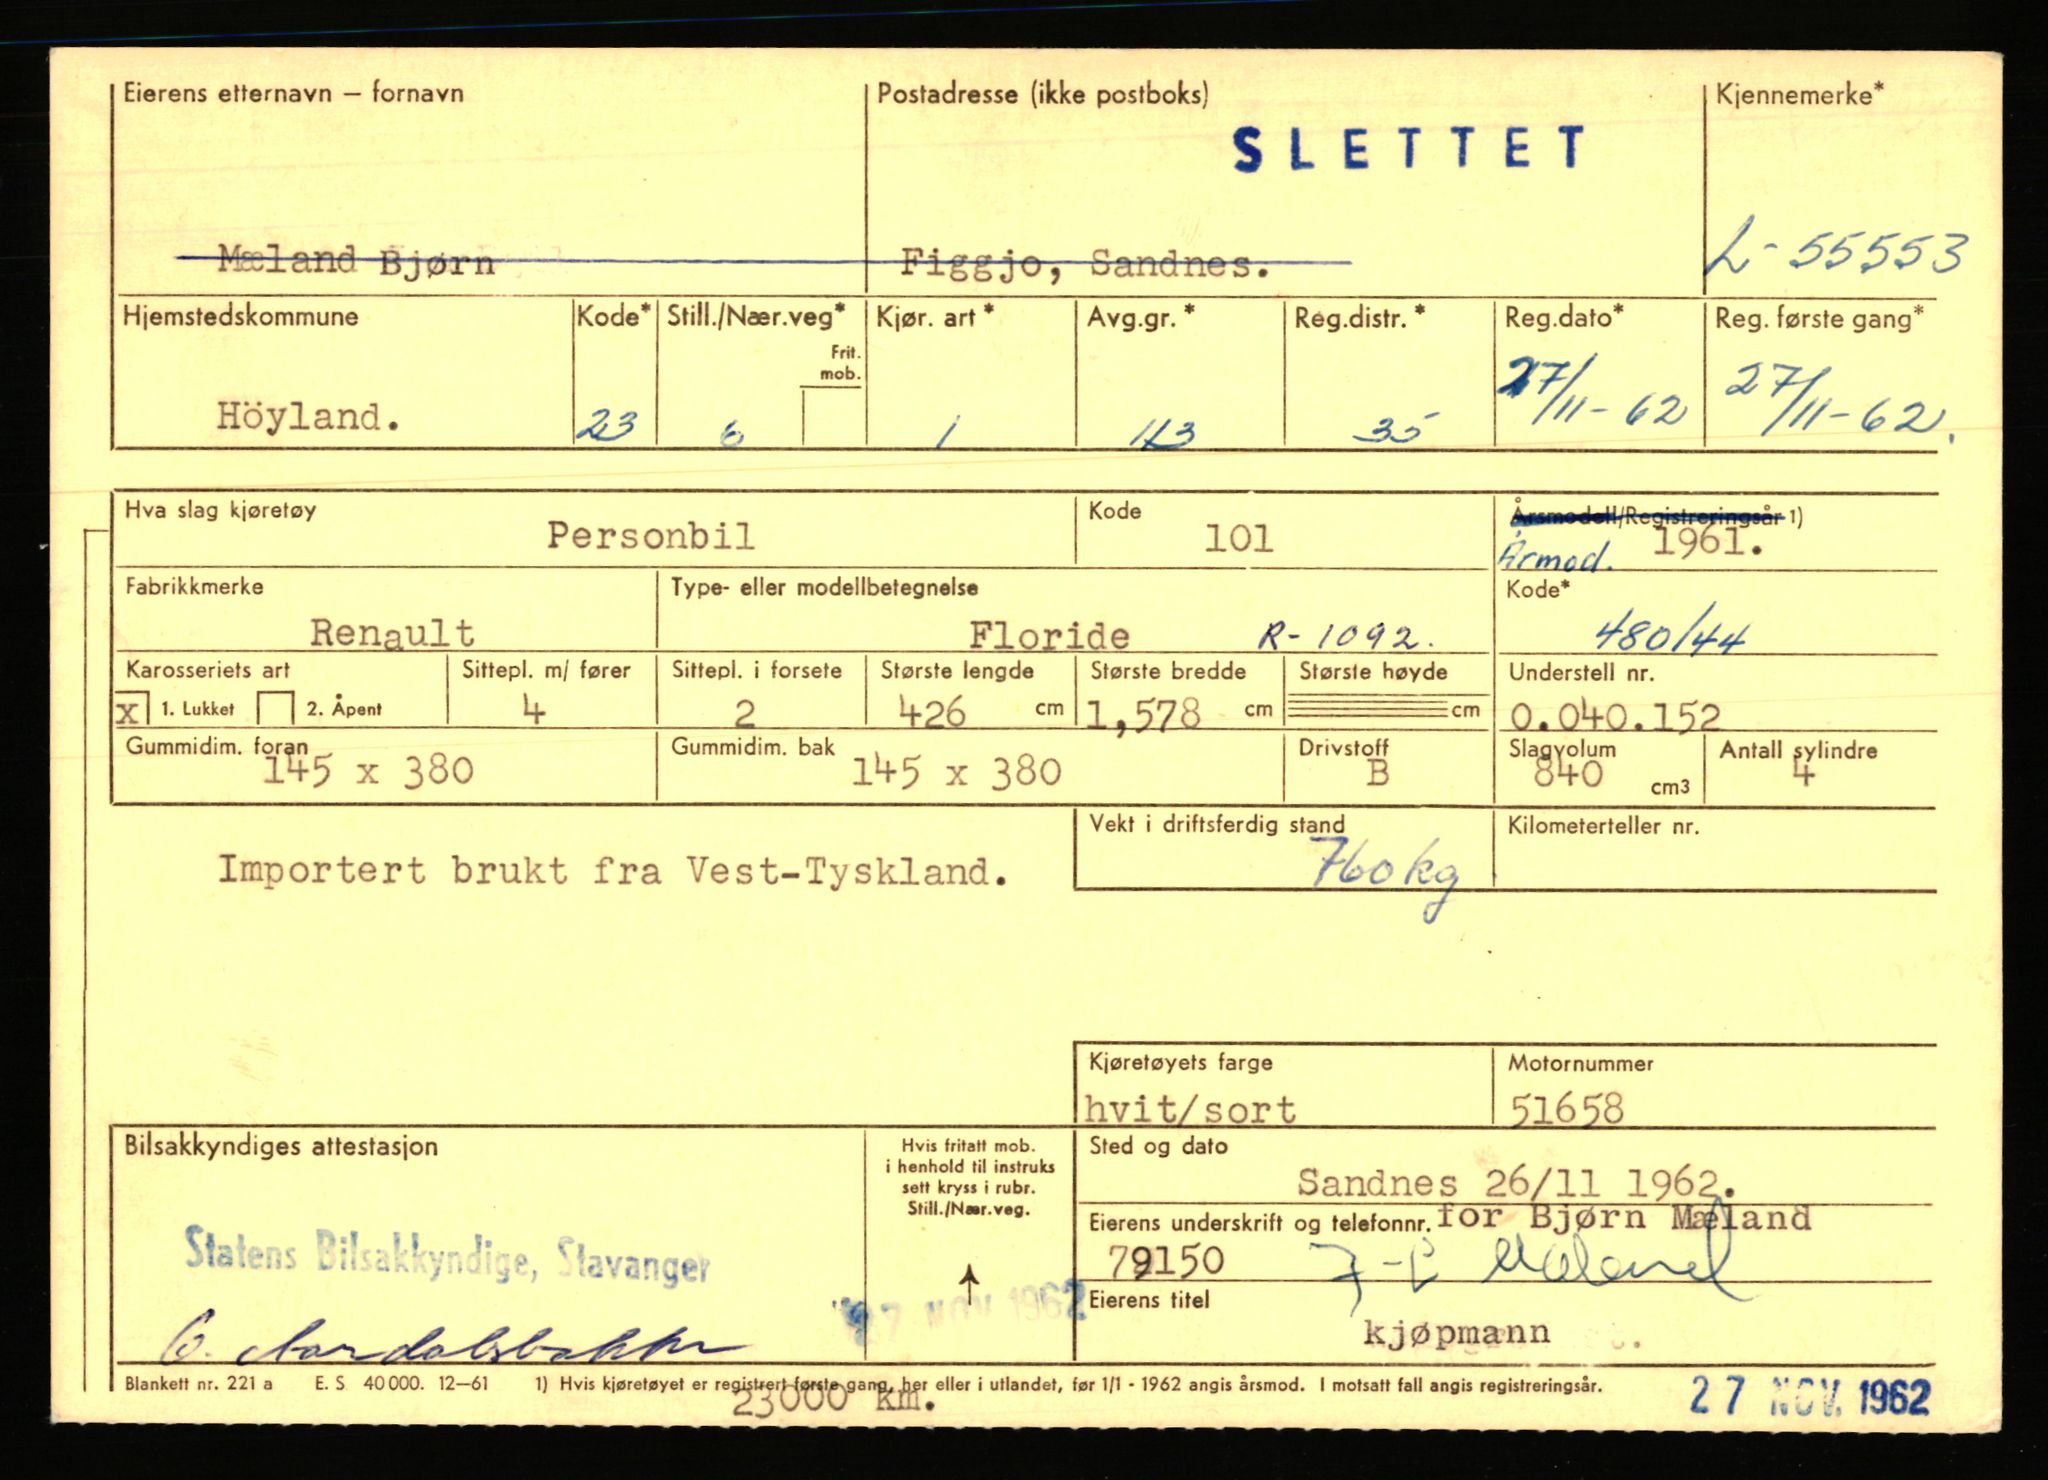 Eierens etternavn – fornavn
Postadresse (ikke postboks)
Kjennemerke*
SLETTET
Mæland Bjørn
Figgjo, Sandnes.
L-55553
Hjemstedskommune
Kode*
Still./Nær.veg*
Kjør. art*
Avg.gr.*
Reg.distr.*
Reg.dato*
Reg. første gang*
Frit.
mob.
Höyland.
23
6
1
113
35
27/11-62
27/11-62.
Hva slag kjøretøy
Personbil
Kode
101
Årsmodell/Registreringsår 1)
Årmod. 1961.
Fabrikkmerke
Renault
Type- eller modellbetegnelse
Floride R-1092.
Kode*
480/44
Karosseriets art
Sittepl. m/ fører
Sittepl. i forsete
Største lengde
Største bredde
Største høyde
Understell nr.
x 1. Lukket 2. Åpent
4
2
426 cm
1,578 cm
cm
0.040.152
Gummidim. foran
145 x 380
Gummidim. bak
145 x 380
Drivstoff
B
Slagvolum
840 cm3
Antall sylindre
4
Vekt i driftsferdig stand
760 kg
Kilometerteller nr.
Importert brukt fra Vest-Tyskland.
Kjøretøyets farge
hvit/sort
Motornummer
51658
Bilsakkyndiges attestasjon
Hvis fritatt mob.
i henhold til instruks
sett kryss i rubr.
Still./Nær.veg.
Sted og dato
Sandnes 26/11 1962.
Eierens underskrift og telefonnr. for Bjørn Mæland
79150 Mæland
Statens Bilsakkyndige, Stavanger
27 NOV 1962
Eierens titel
kjøpmann
Blankett nr. 221 a E. S. 40 000. 12–61 1) Hvis kjøretøyet er registrert første gang, her eller i utlandet, før 1/1 - 1962 angis årsmod. I motsatt fall angis registreringsår.
23000 km.
27 NOV. 1962